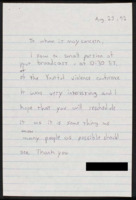 Aug 25 - 92
To whom it may concern,
I saw a small portion of
your broadcast - at 0:30
of the Youth violence conference
It was very interesting and I
hope that you will reschedule
it as it is some thing as
many people as possible should
see. Thank you